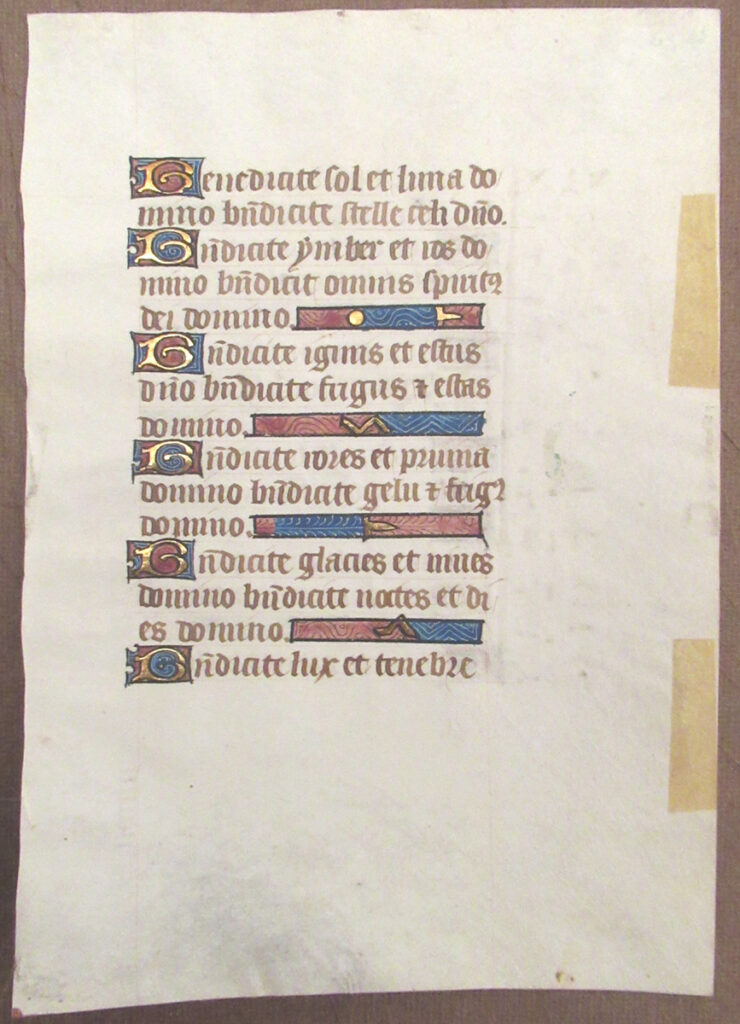 Benedicite sol et luna do
mino bn̄dicite stelle celi dn̄o.
Bn̄dicite ymber et ros do
mino bn̄dicit omnis spiritꝰ
dei domino.
Bn̄dicite ignis et estus
dn̄o bn̄dicite frigus ⁊ estas
domino.
Bn̄dicite rores et pruina
domino bn̄dicite gelu ⁊ frigꝰ
domino.
Bn̄dicite glacies et niues
domino bn̄dicite noctes et di
es domino.
Bn̄dicite lux et tenebre